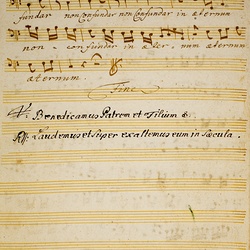 fundar non confundar non Confundar in æternum
non - confundar in æter- num in
æternum.
Fine
℣. Benedicamus Patrem et Filium &.
℟. Laudemus et super exaltemus eum in Sæcula.